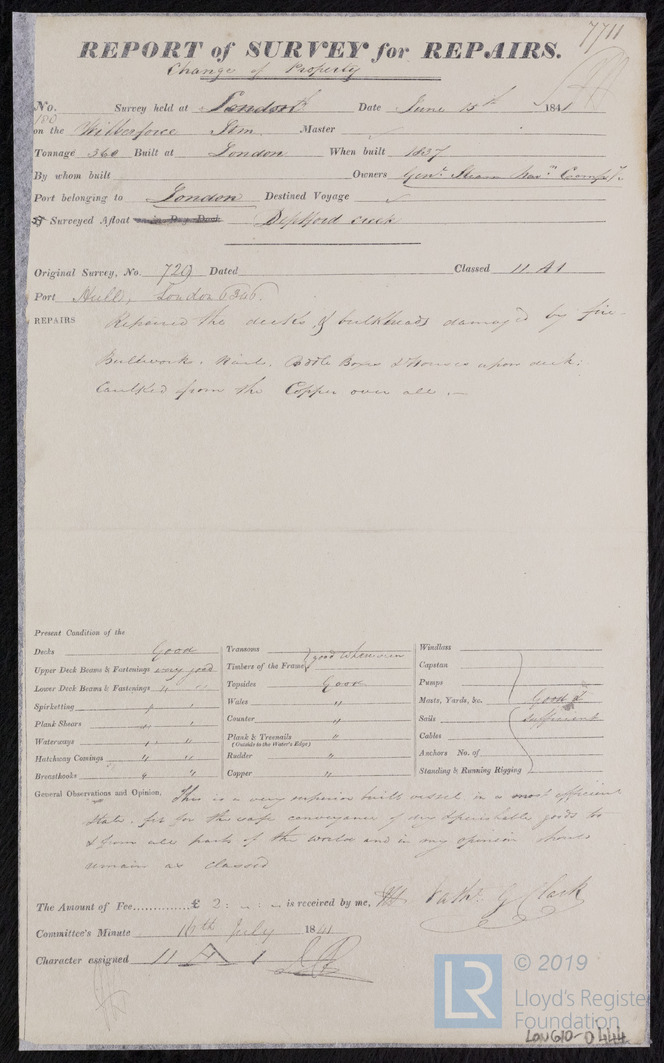 7711
REPORT of SURVEY for REPAIRS.
Change of Property
No. Survey held at London Date June 15th 1841
on the Wilberforce Stm. Master
Tonnage 360 Built at London When built 1837
By whom built Owners Genl. Steam Navn. Compy.
Port belonging to London Destined Voyage
Surveyed Afloat in Dry Dock Deptford creek
Original Survey, No. 729 Dated Classed 11 A1
Port Hull, London 6246.
REPAIRS Repaired the decks, & bulkheads damaged by fire.
Bulwarks, Paddle Boxes & Houses upon deck.
Caulked from the Copper over all.
Present Condition of the
Decks Good
Upper Deck Beams & Fastenings very good
Lower Deck Beams & Fastenings " "
Spirketting " "
Plank Shears " "
Waterways " "
Hatchway Comings " "
Breasthooks " "
Transoms
Timbers of the Frame good where seen
Topsides Good
Wales "
Counter "
Plank & Treenails "
(Outside to the Water's Edge)
Rudder "
Copper "
Windlass
Capstan
Pumps
Masts, Yards, &c. Good &
Sails Sufficient
Cables
Anchors No. of
Standing & Running Rigging
General Observations and Opinion, This is a very superior built vessel in a most efficient
state. fit for the safe conveyance of dry & perishable goods to
& from all parts of the world and in my opinion should
remain as classed
The Amount of Fee.............£ 2 : - : - is received by me, Nathl. G Clark
Committee's Minute 16th July 1841
Character assigned 11 A 1
LR © 2019
Lloyd's Register
Foundation
LON610-0444